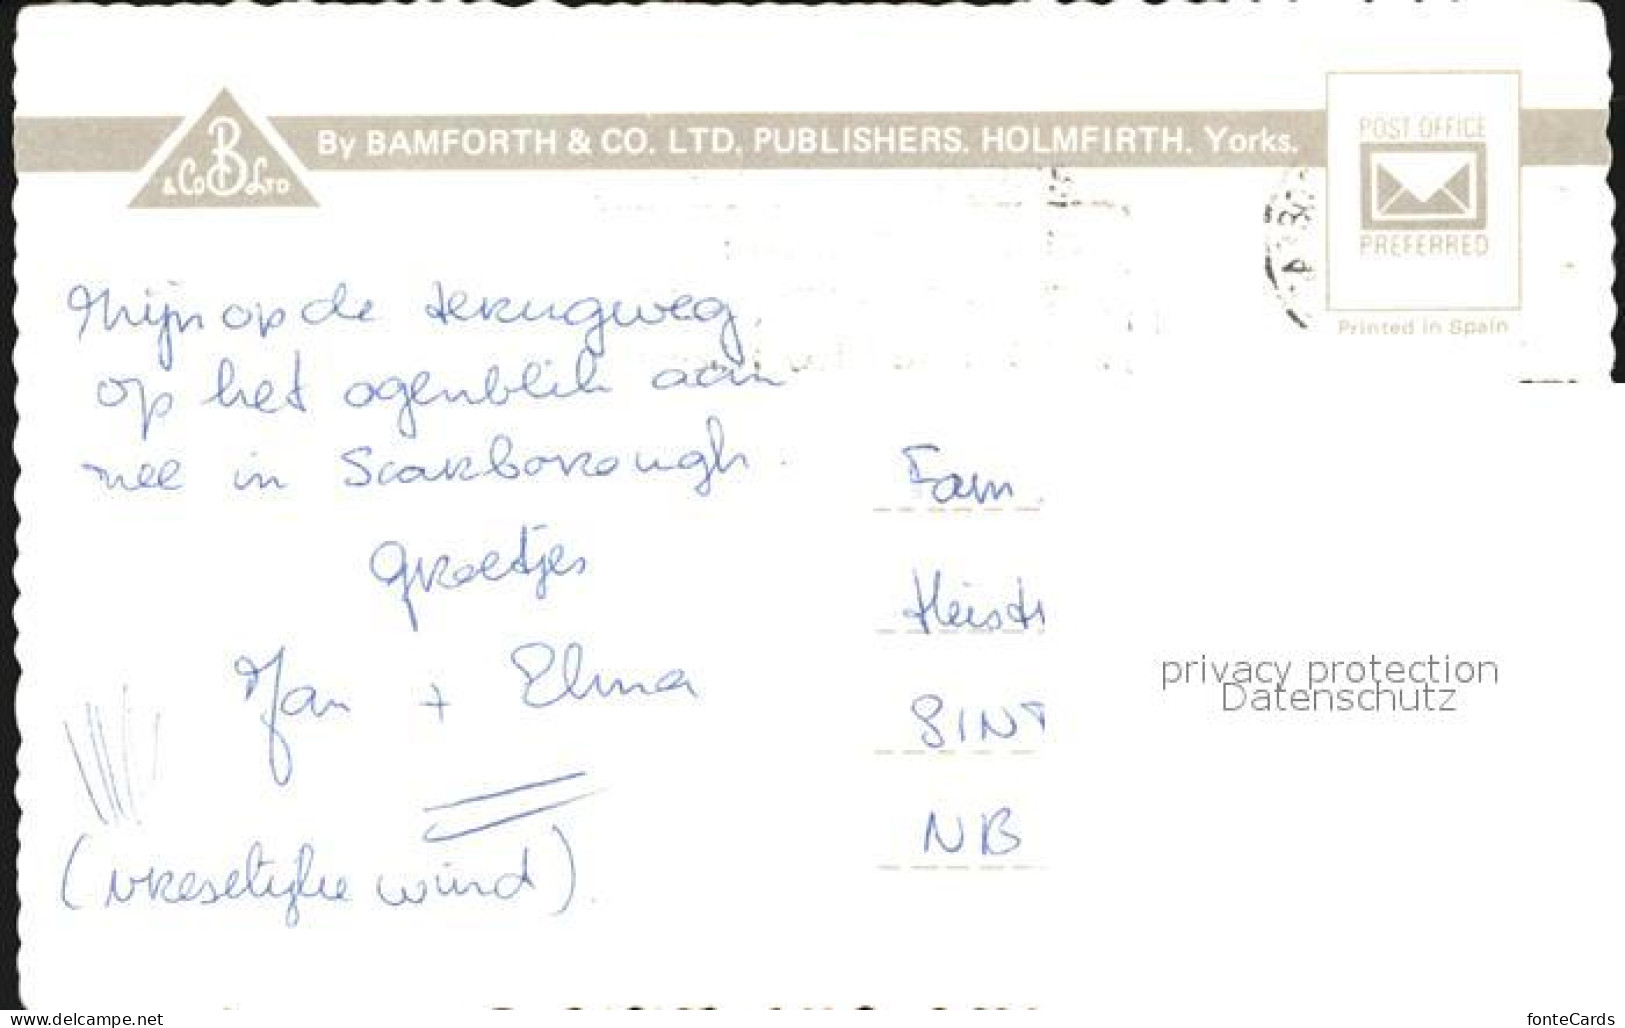 By BAMFORTH & CO. LTD. PUBLISHERS. HOLMFIRTH. Yorks.
B
& Co Ltd
POST OFFICE
PREFERRED
Printed in Spain
op de terugweg
op het ogenblik aan
zee in Scarborough.
Groetjes
Jan + Elma
(vreselijke wind).
Fam.
SINT
NB
privacy protection
Datenschutz
www.delcampe.net
fonteCards